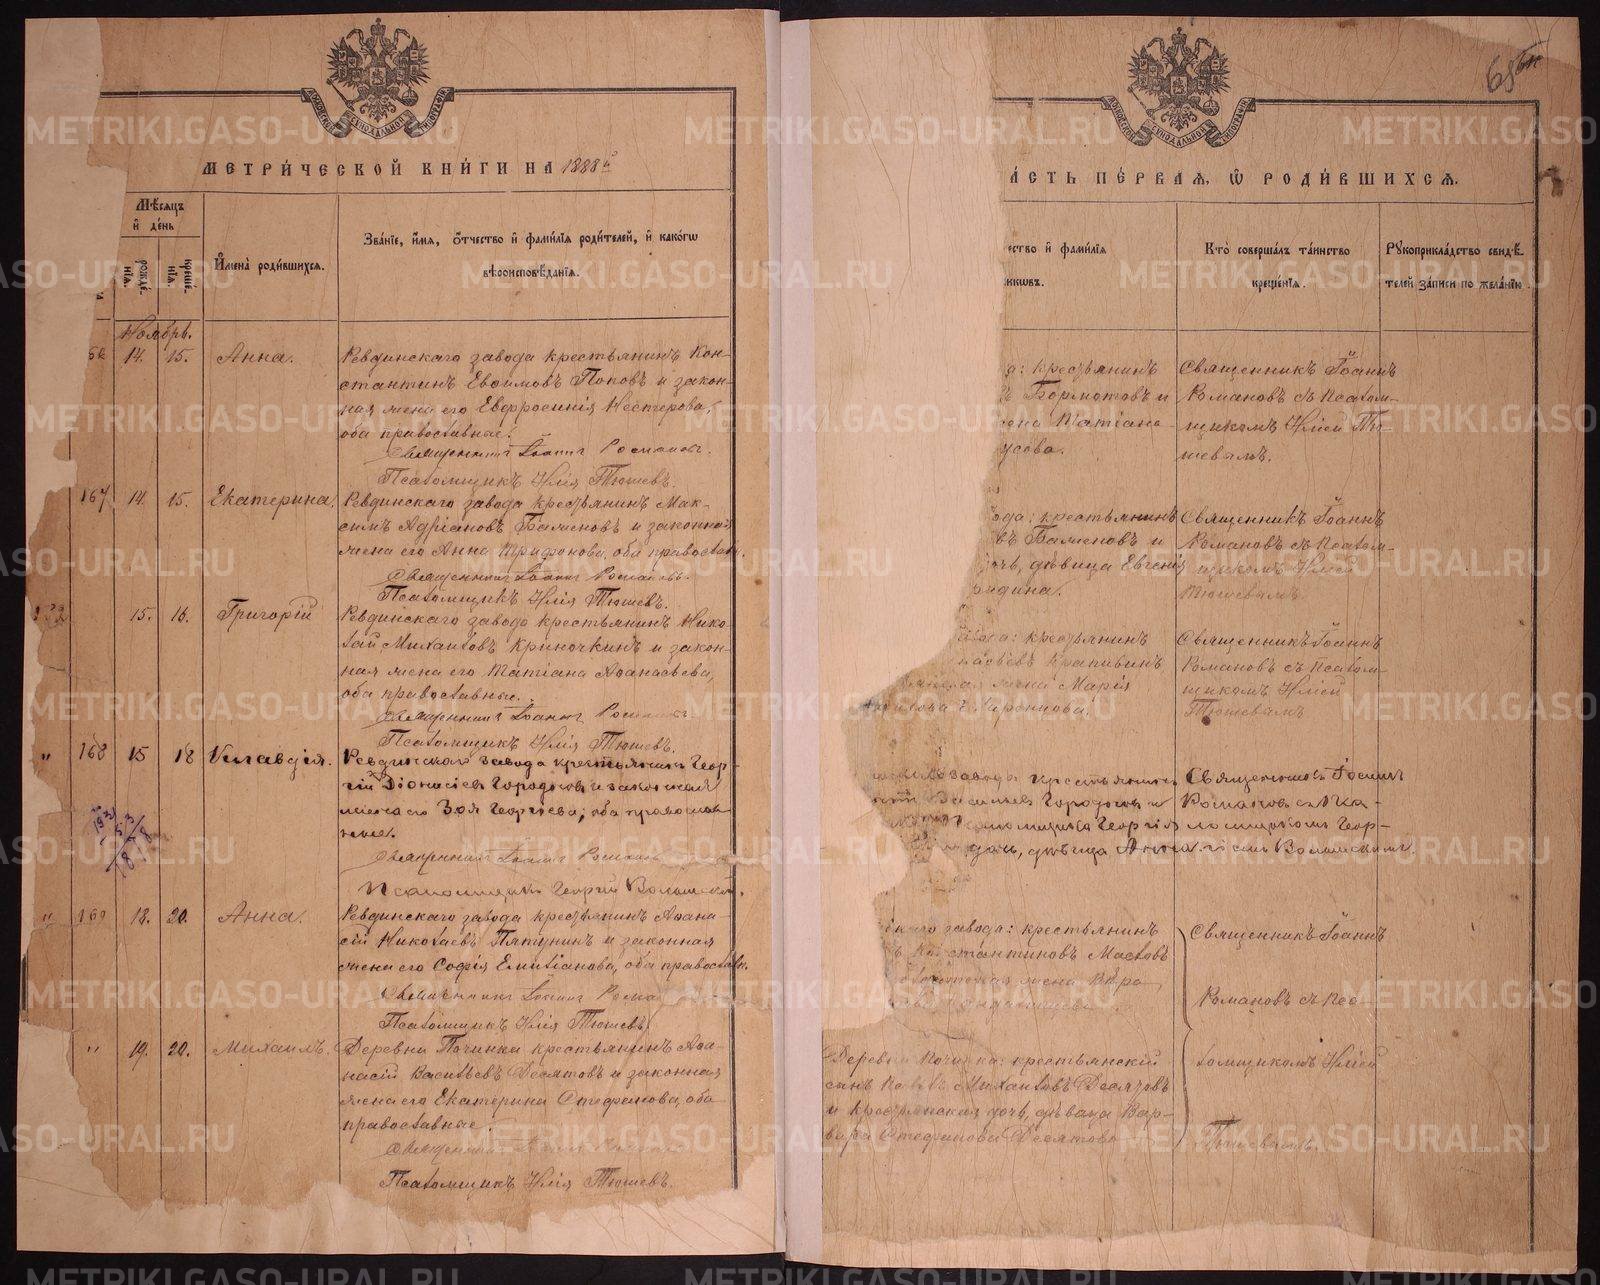 МЕТРИ́ЧЕСКОЙ КНИ́ГИ НА 1888 й
Мѣсяцъ и́ де́нь
рожде́нїя
креще́нїя
И҆мена̀ роди́вшихсѧ.
Зва́нїе, и҆́мѧ, ѻ҆́тчество и҆ фами́лїѧ роди́телей, и҆ како́гѡ
вѣроисповѣ́данїѧ.
Ноябрь.
14. 15. Анна.
Ревдинскаго завода крестьянинъ Кон-
стантинъ Евѳимовъ Поповъ и закон-
ная жена его Евфросинія Нестерова,
оба православные.
Священникъ Іоаннъ Романовъ.
Псаломщикъ Илія Тюшевъ.
167 14. 15. Екатерина.
Ревдинскаго завода крестьянинъ Мак-
симъ Адріановъ Баженовъ и законная
жена его Анна Трифонова, оба православн.
Священникъ Іоаннъ Романовъ.
Псаломщикъ Илія Тюшевъ.
15. 16. Григорій
Ревдинскаго завода крестьянинъ Нико-
лай Михаиловъ Криночкинъ и закон-
ная жена его Татіана Аѳанасьева,
оба православные.
Священникъ Іоаннъ Романовъ.
Псаломщикъ Илія Тюшевъ.
" 168 15 18 Клавдія.
Ревдинскаго завода крестьянинъ Геор-
гій Діонисіевъ Городковъ и законная
жена его Зоя Георгіева, оба православ-
ные.
Священникъ Іоаннъ Романовъ
Псаломщикъ Георгій
" 169 18. 20. Анна.
Ревдинскаго завода крестьянинъ Аѳана-
сій Николаевъ Пятунинъ и законная
жена его Софія Емиліанова, оба православн.
Священникъ Іоаннъ Рома
Псаломщикъ Илія Тюшевъ.
" 19. 20. Михаилъ.
Деревни Починка крестьянинъ Аѳа-
насій Васильевъ Десятовъ и законная
жена его Екатерина Стефанова, оба
православные.
Священникъ Іоаннъ
Псаломщикъ Илія Тюшевъ.
68
А́СТЬ ПЕ́РВАѦ, Ѡ҆ РОДИ́ВШИХСѦ.
ество и҆ фами́лїѧ
никѡвъ.
Кто̀ соверша́лъ та́инство
креще́нїѧ.
Рꙋкоприкла́дство свидѣ́-
телей за́писи по жела́нїю
да: крестьянинъ
ъ Бормотовъ и
жена Татіана
усова.
Священникъ Іоаннъ
Романовъ съ Псалом-
щикомъ Иліей Тю-
шевымъ.
вода: крестьянинъ
въ Баженовъ и
дочь, дѣвица Евгенія
Священникъ Іоаннъ
Романовъ съ Псалом-
щикомъ Иліей
Тюшевымъ.
завода: крестьянинъ
Крапивинъ
жена Марія
Священникъ Іоаннъ
Романовъ съ Псалом-
щикомъ Иліей
Тюшевымъ
завода крестьянинъ
Васильевъ Городковъ и
Псаломщика Георгія
дочь, дѣвица Анна
Священникъ Іоаннъ
Романовъ съ Пса-
ломщикомъ Геор-
гіемъ
завода: крестьянинъ
Константиновъ Масловъ
жена Вѣра
Деревни Починка: крестьянскій
сынъ Михаиловъ Десятовъ
и крестьянская дочь, дѣвица Вар-
вара Стефанова Десятова
Священникъ Іоаннъ
Романовъ съ Пса-
ломщикомъ Иліей
Тюшевымъ.
METRIKI.GASO-URAL.RU